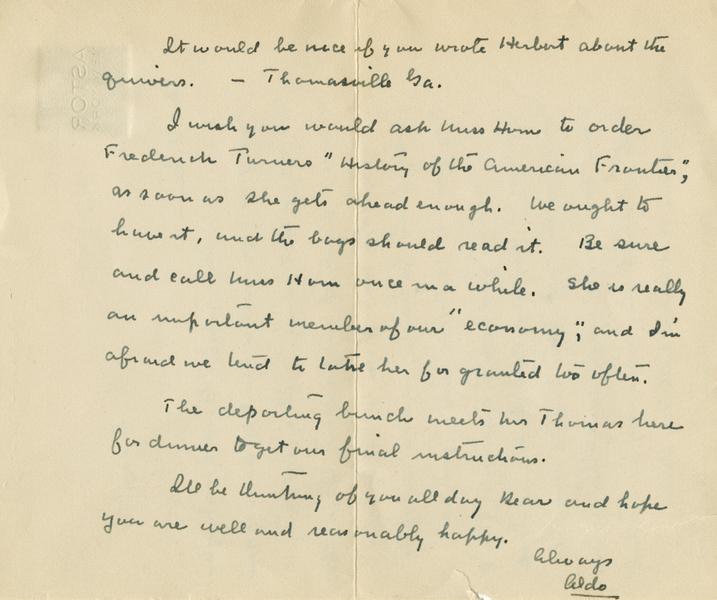 It would be nice if you wrote Herbert about the
quivers. — Thomasville Ga.
I wish you would ask Miss Horn to order
Frederick Turners "History of the American Frontier",
as soon as she gets ahead enough. We ought to
have it, and the boys should read it. Be sure
and call Miss Horn once in a while. She is really
an important member of our "economy", and I'm
afraid we tend to take her for granted too often.
The departing bunch meets Mr Thomas here
for dinner to get our final instructions.
I'll be thinking of you all day Dear and hope
you are well and reasonably happy.
Always
Aldo